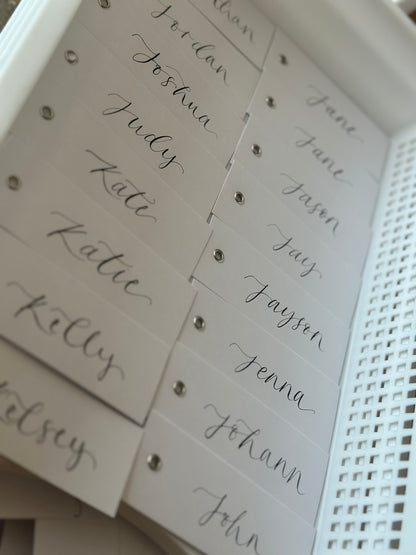 Jordan
Joshua
Judy
Kate
Katie
Kelly
Kelsey
Jane
Jane
Jason
Jay
Jayson
Jenna
Johann
John